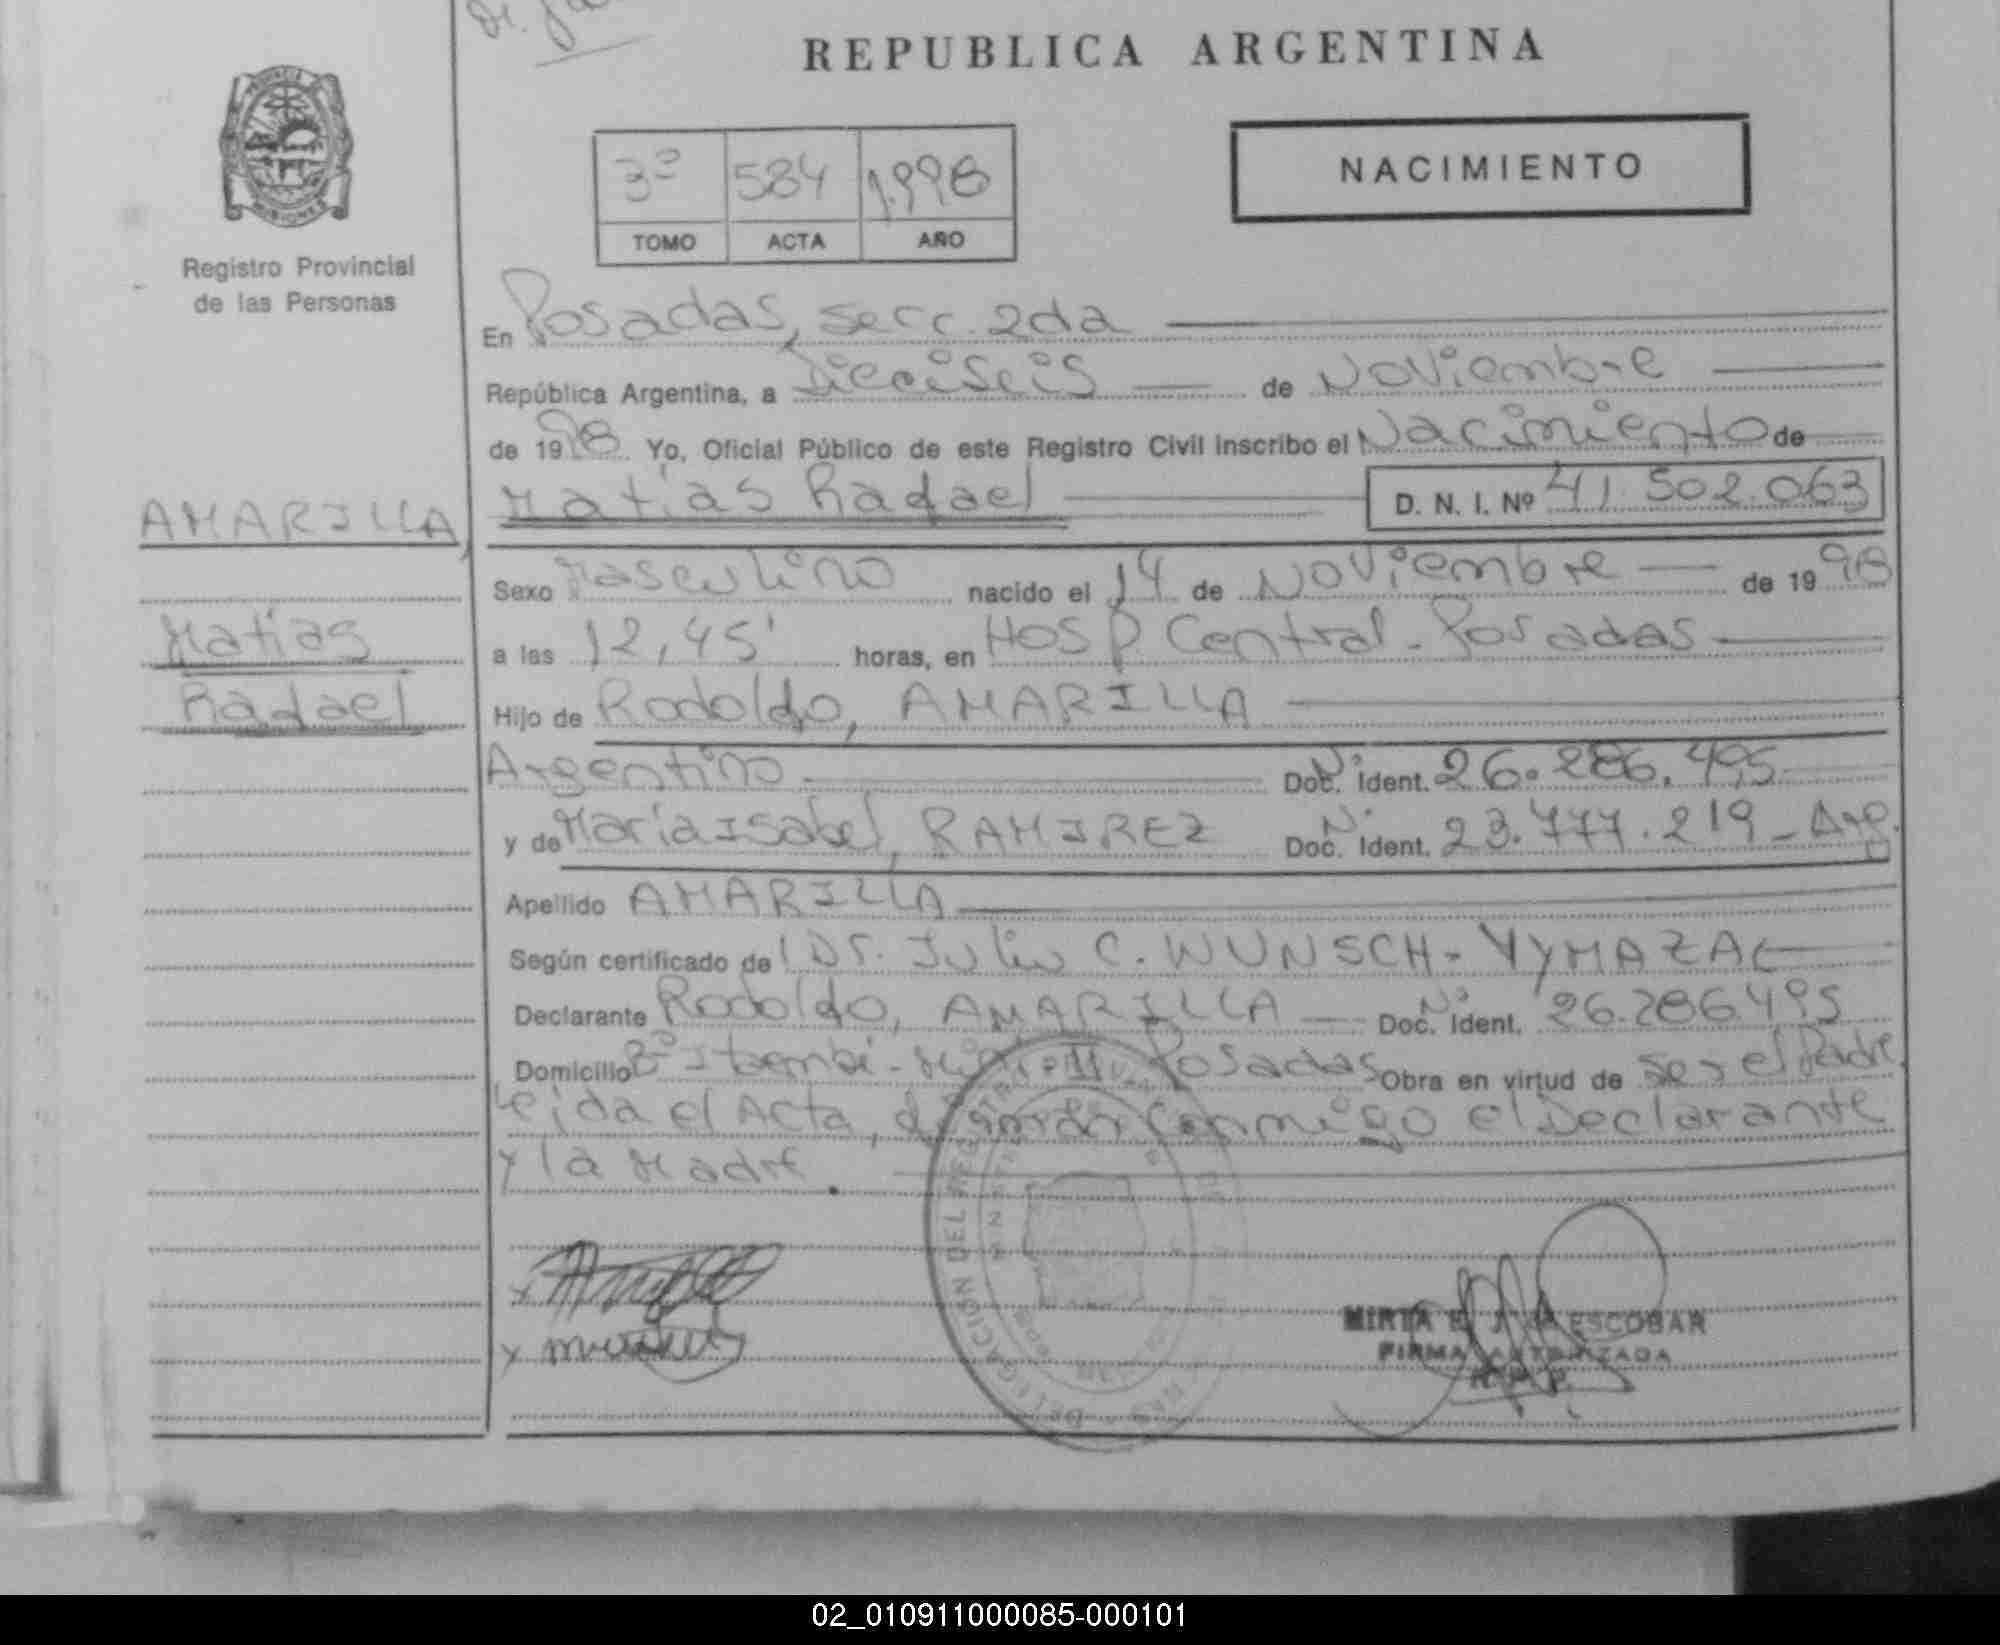 REPUBLICA ARGENTINA
PROVINCIA
MISIONES
Registro Provincial
de las Personas
3º 584 1.998
TOMO ACTA AÑO
NACIMIENTO
En Posadas, secc. 2da
República Argentina, a Dieciseis de Noviembre
de 1998 Yo, Oficial Público de este Registro Civil inscribo el Nacimiento de
AMARILLA,
Matias Rafael D. N. I. Nº 41.502.063
Sexo Masculino nacido el 14 de Noviembre de 1998
Matias
a las 12,45' horas, en Hosp Central - Posadas
Rafael
Hijo de Rodolfo, AMARILLA
Argentino Doc. Ident. 26.286.495
y de María Isabel, RAMIREZ Doc. Ident. 23.777.219 - Arg.
Apellido AMARILLA
Según certificado de Dr. Julio C. WUNSCH - VYMAZAL
Declarante Rodolfo, AMARILLA Doc. Ident. 26.286.495
Domicilio Bº Itaembé - Posadas Obra en virtud de ser el Padre.
Leida el Acta, firman conmigo el Declarante
y la Madre.
DELEGACION DEL REGISTRO
MIRTA E. ESCOBAR
FIRMA AUTORIZADA
R. P. P.
02_010911000085-000101